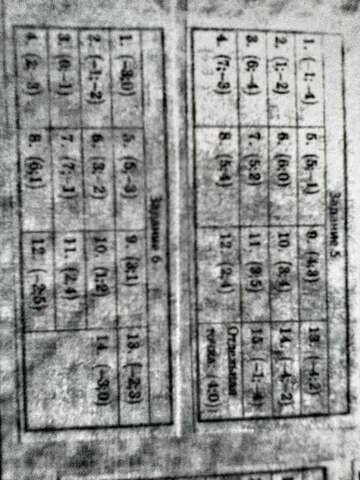 Задание 5
1. (-1; -4) 5. (5; -1) 9. (4;3) 13. (-4;2)
2. (1; -2) 6. (6;0) 10. (3;4) 14. (-4; -2)
3. (6; -4) 7. (5;2) 11. (3;5) 15. (-1; -4)
4. (7; -3) 8. (5;4) 12. (2;4) Отдельная точка: (4;0)
Задание 6
1. (-3;0) 5. (5; -3) 9. (3;1) 13. (-2;3)
2. (-1; -2) 6. (3; -2) 10. (1;2) 14. (-3;0)
3. (0; -1) 7. (7; -1) 11. (2;4)
4. (2; -3) 8. (6;1) 12. (-2;5)